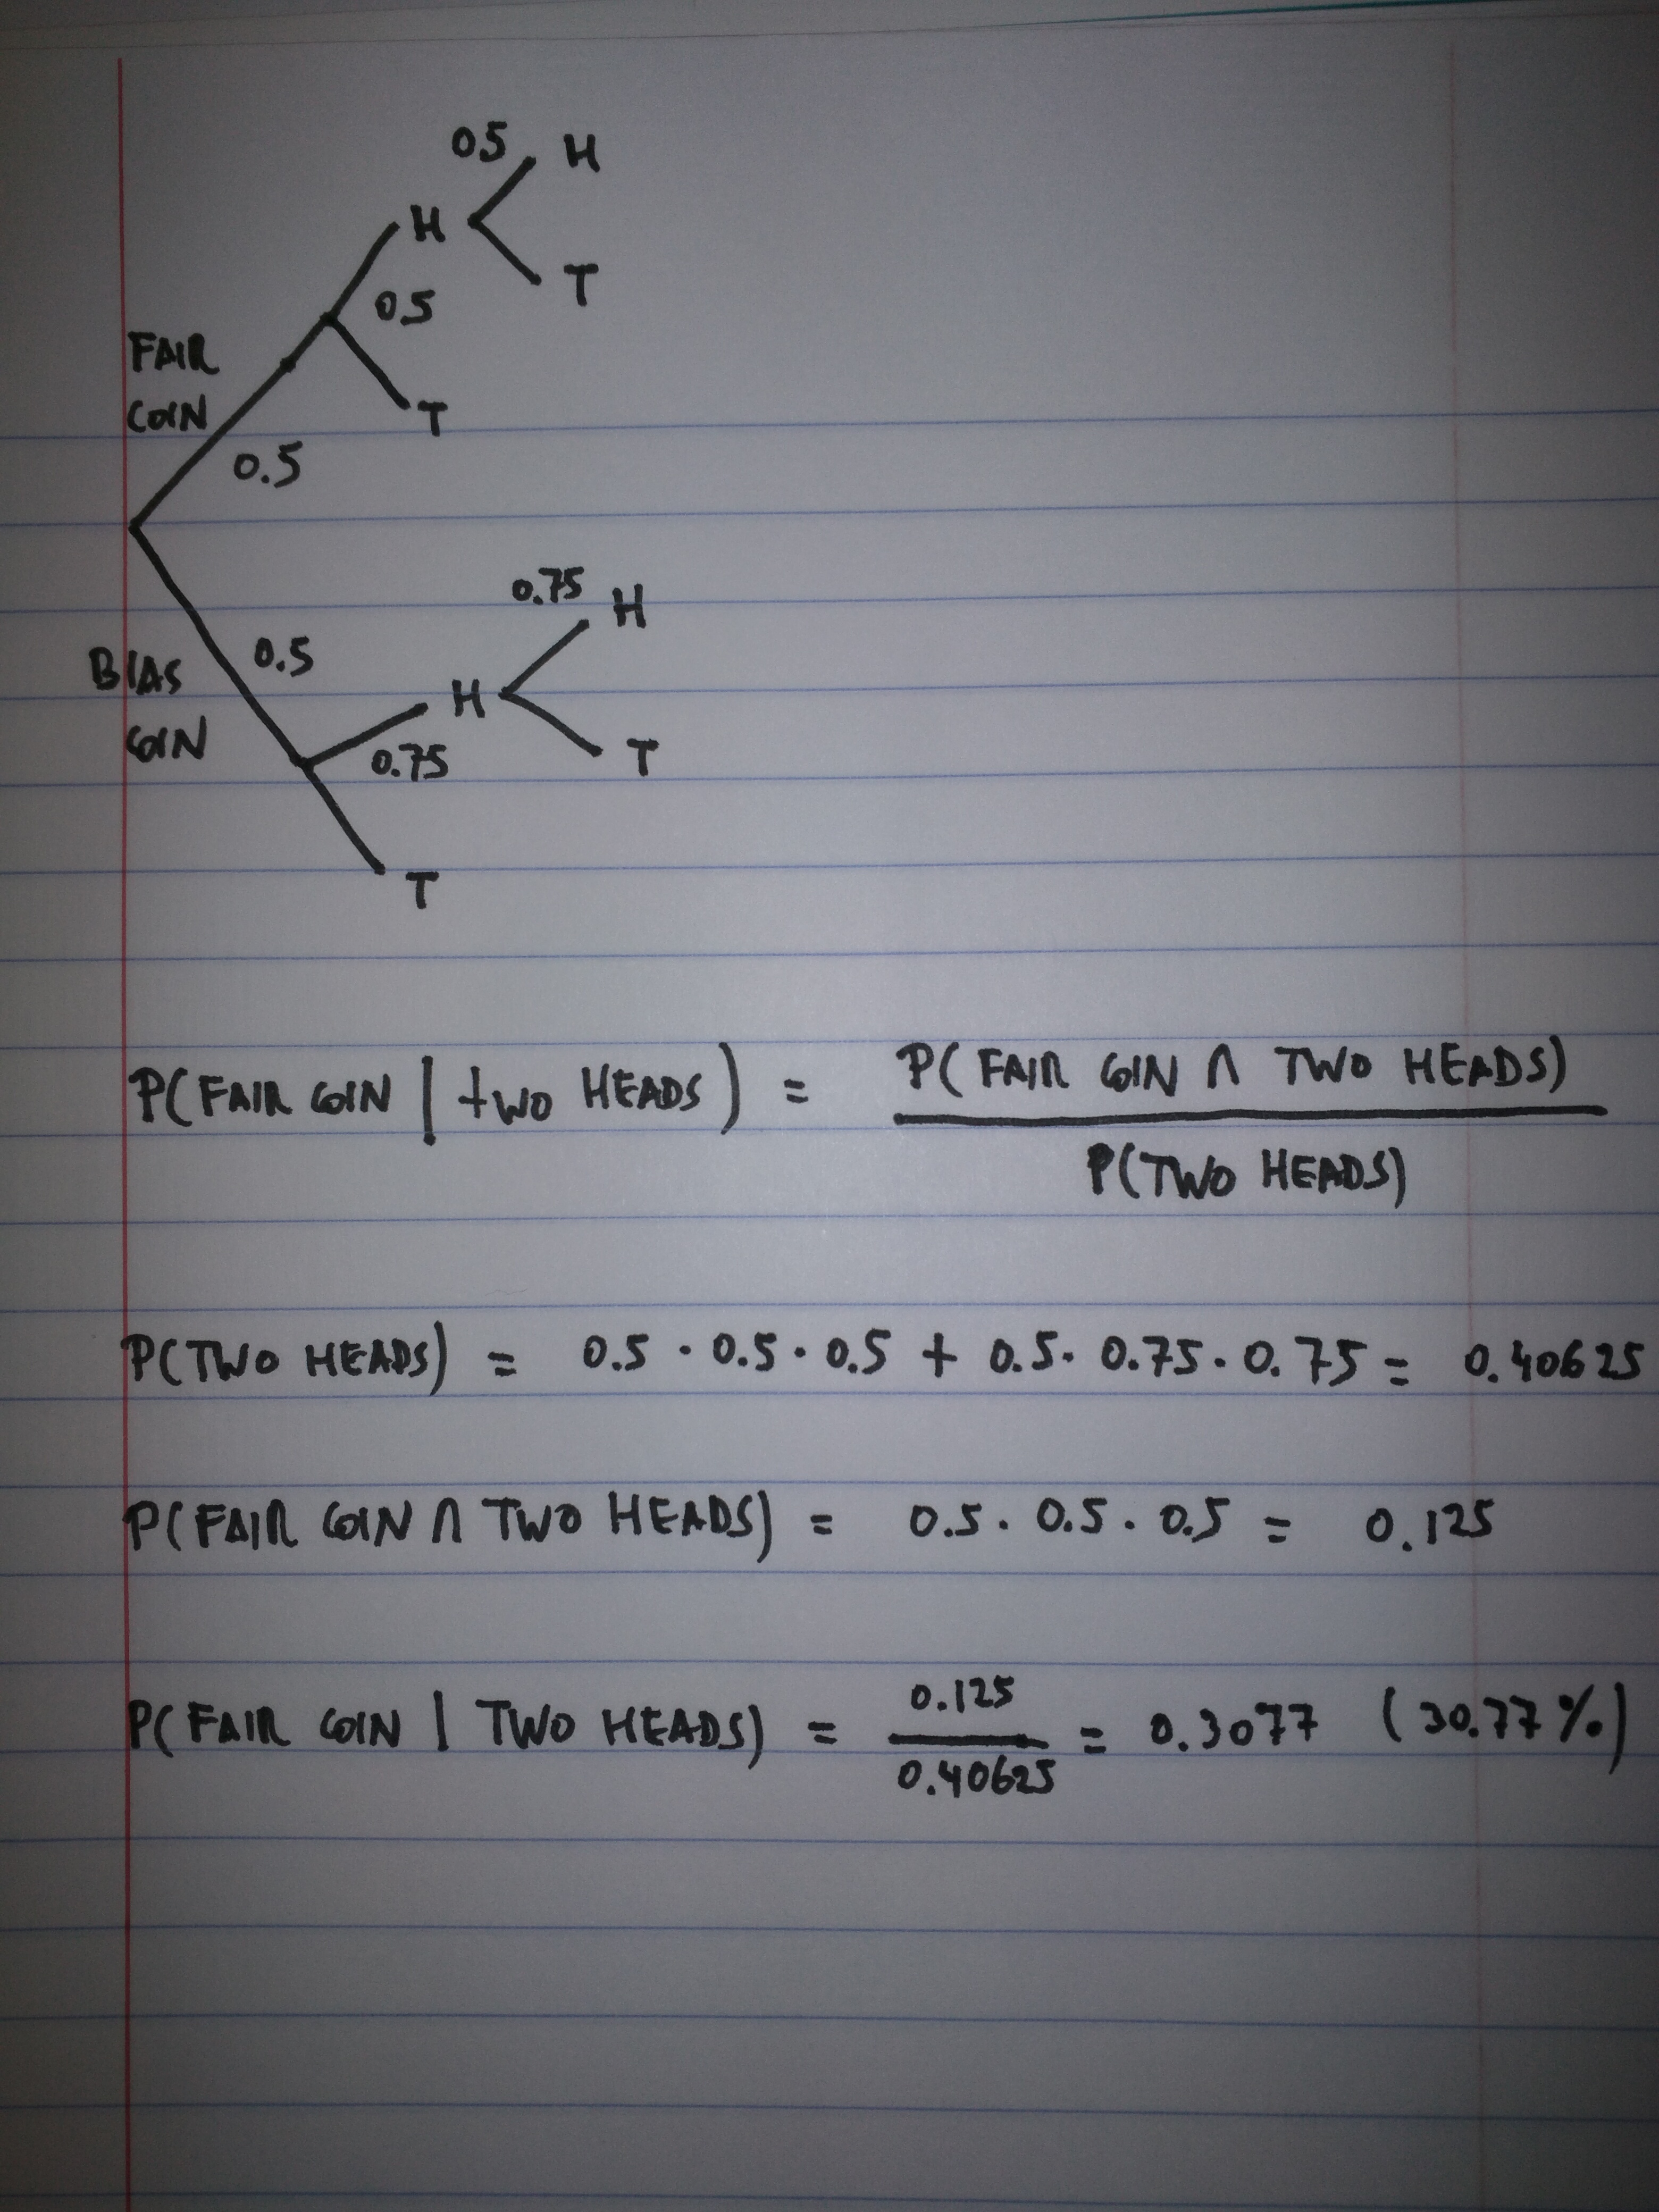 0.5 H
H
T
0.5
FAIR
COIN
T
0.5
0.75 H
0.5
BIAS
H
COIN
0.75
T
T
P(FAIR COIN | TWO HEADS) = P(FAIR COIN ∩ TWO HEADS)
P(TWO HEADS)
P(TWO HEADS) = 0.5 · 0.5 · 0.5 + 0.5 · 0.75 · 0.75 = 0.40625
P(FAIR COIN ∩ TWO HEADS) = 0.5 · 0.5 · 0.5 = 0.125
P(FAIR COIN | TWO HEADS) = 0.125 = 0.3077 (30.77%)
0.40625